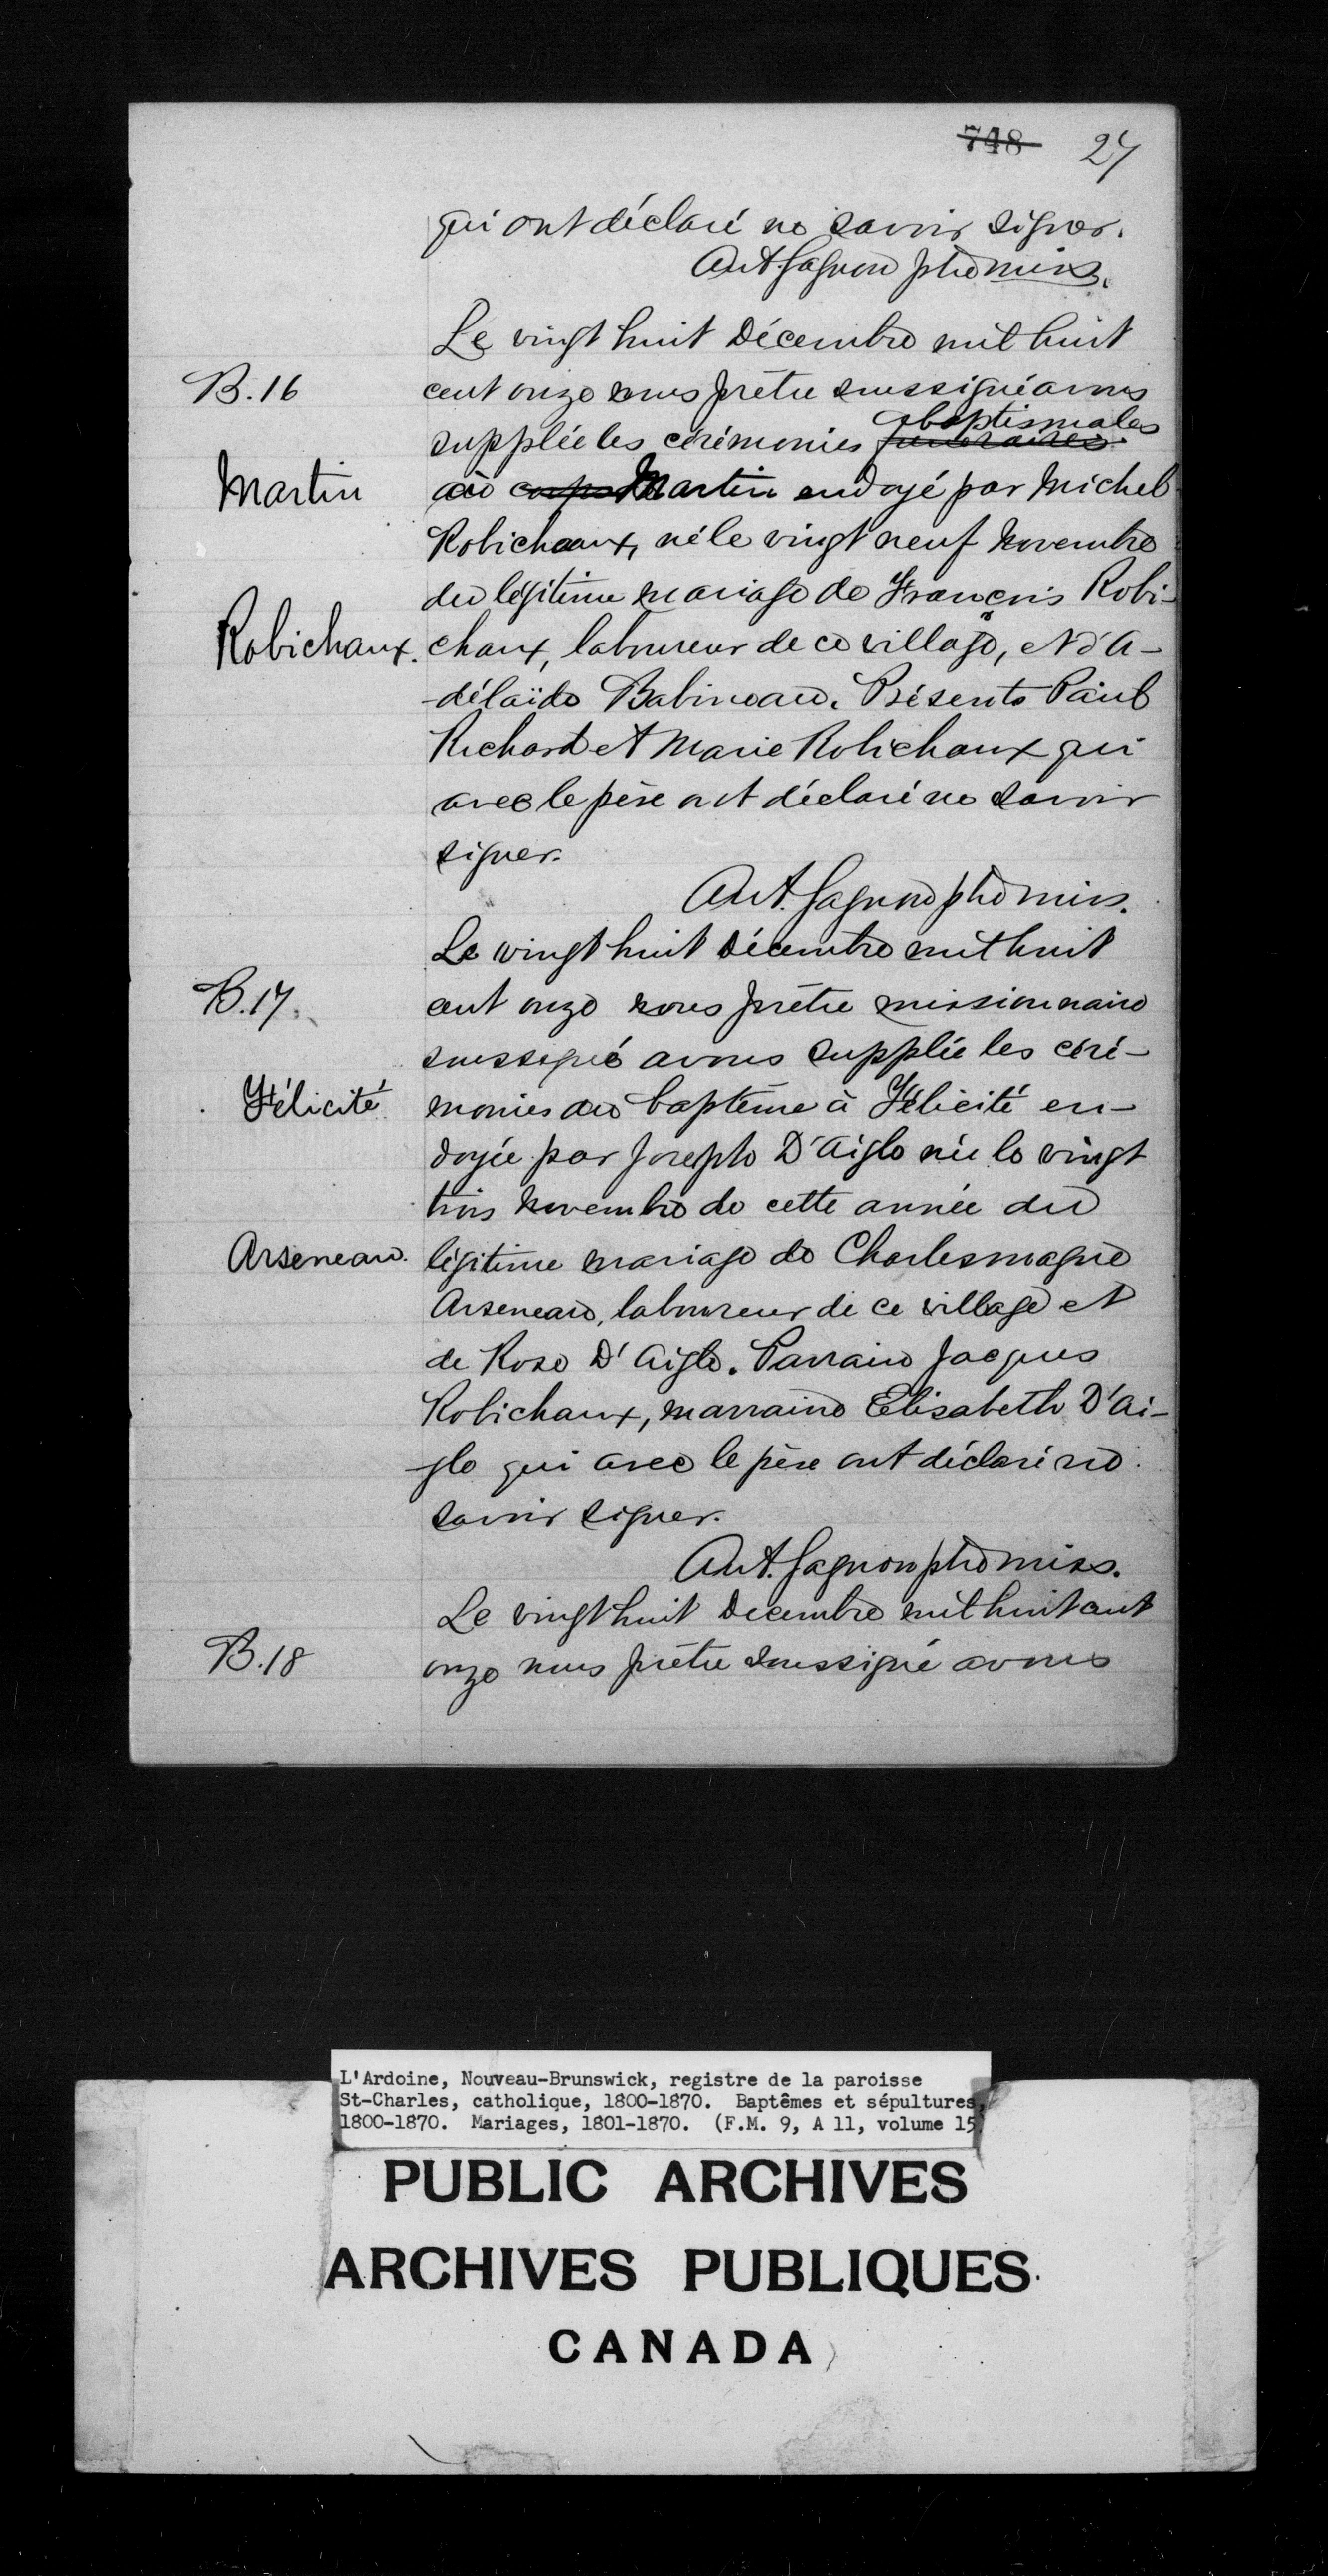 748 27
qui ont déclaré ne savoir signer.
Ant. Gagnon ptre miss.
Le vingt huit Décembre mil huit
B.16
cent onze nous prêtre soussigné avons
baptismales
suppléé les cérémonies funéraires
Martin
au corps Martin endoyé par Michel
Robichaux, né le vingt neuf Novembre
du légitime mariage de François Robi-
Robichaux.
chaux, laboureur de ce village, et d'A-
-délaïde Babineau. Présents Paul
Richard et Marie Robichaux qui
avec le père ont déclaré ne savoir
signer.
Ant. Gagnon ptre miss.
Le vingt huit Décembre mil huit
B.17.
cent onze nous prêtre missionnaire
soussigné avons suppléé les céré-
Félicité
monies du baptême à Félicité en-
doyée par Joseph D'Aigle née le vingt
trois Novembre de cette année du
Arseneau.
légitime mariage de Charlesmagne
Arseneau, laboureur de ce village et
de Rose D'Aigle. Parrain Jacques
Robichaux, marraine Elisabeth D'Ai-
gle qui avec le père ont déclaré ne
savoir signer.
Ant. Gagnon ptre miss.
Le vingt huit Decembre mil huit cent
B.18
onze nous prêtre soussigné avons
L'Ardoine, Nouveau-Brunswick, registre de la paroisse
St-Charles, catholique, 1800-1870. Baptêmes et sépultures,
1800-1870. Mariages, 1801-1870. (F.M. 9, A 11, volume 15)
PUBLIC ARCHIVES
ARCHIVES PUBLIQUES
CANADA